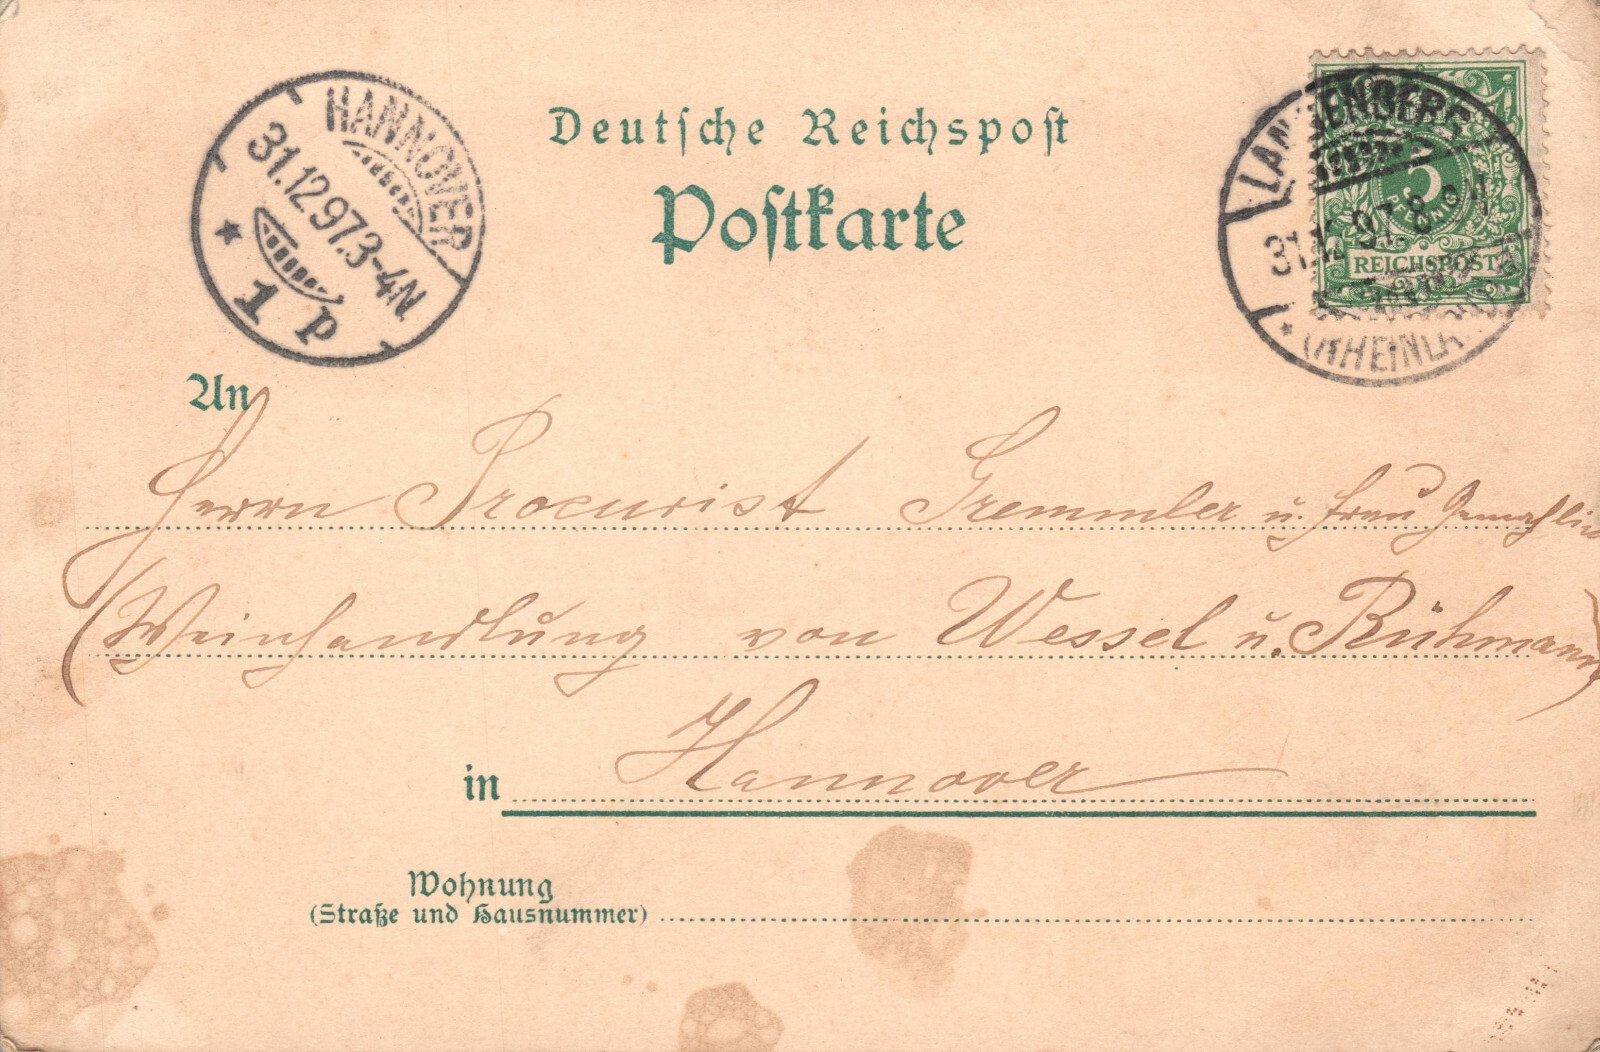 Deutsche Reichspost
Postkarte
HANNOVER
31.12.97.3-4N
* 1 P
LANGENBERG
31.12.97.8-9V
* (RHEINL.)
5
PFENNIG
REICHSPOST
An
Herrn Procurist Gremmler u. Frau Gemahlin
(Weinhandlung von Wessel u. Rühmann)
in Hannover
Wohnung
(Straße und Hausnummer)